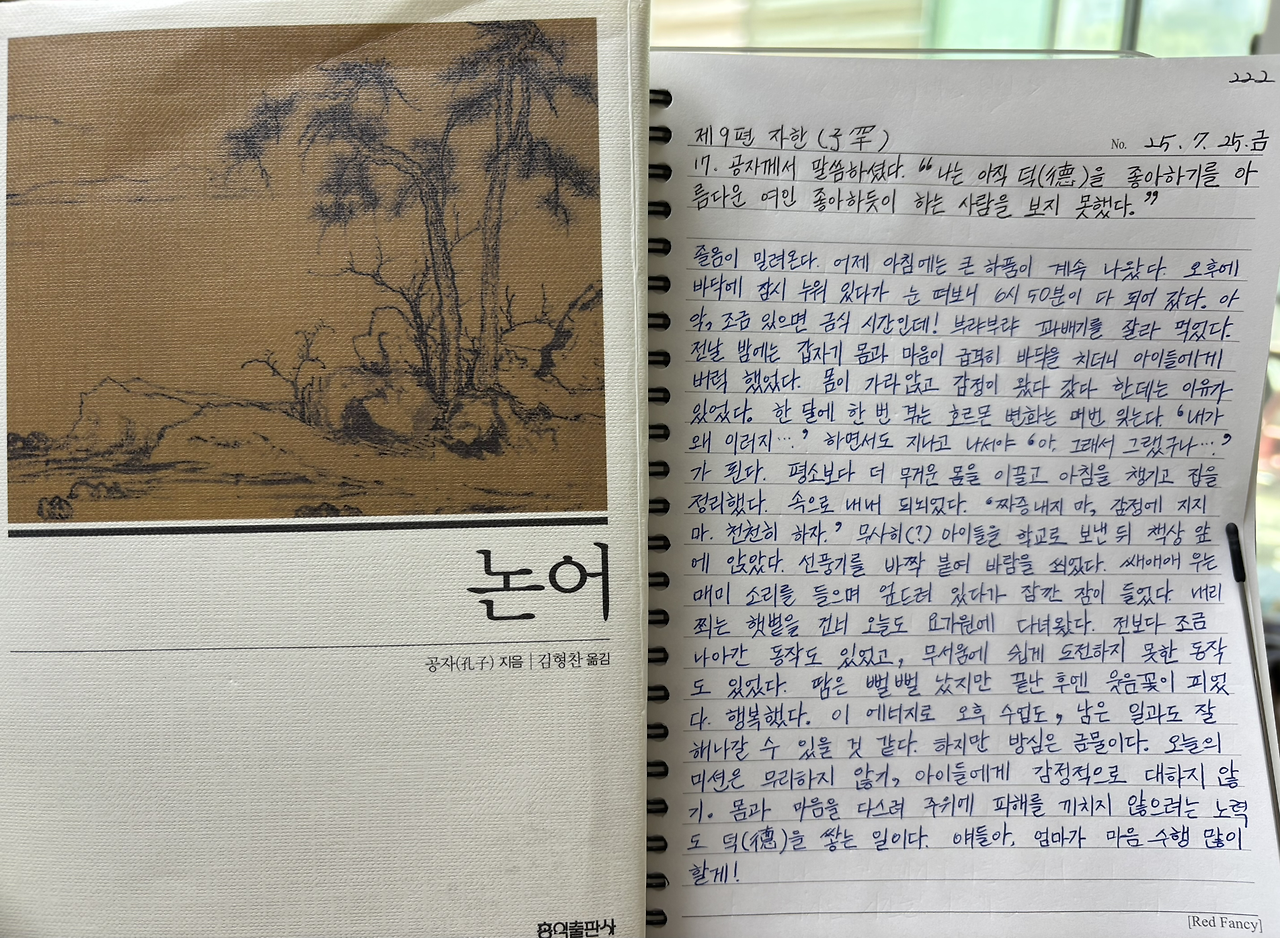 논어
공자(孔子) 지음 | 김형찬 옮김
홍익출판사
222
제9편 자한(子罕)
No. 25. 7. 25. 금
17. 공자께서 말씀하셨다. “나는 아직 덕(德)을 좋아하기를 아
름다운 여인 좋아하듯이 하는 사람을 보지 못했다.”
졸음이 밀려온다. 어제 아침에는 큰 하품이 계속 나왔다. 오후에
바닥에 잠시 누워 있다가 눈 떠보니 6시 50분이 다 되어 갔다. 아
악, 조금 있으면 금식 시간인데! 부랴부랴 꽈배기를 잘라 먹었다.
전날 밤에는 갑자기 몸과 마음이 급격히 바닥을 치더니 아이들에게
버럭 했었다. 몸이 가라앉고 감정이 왔다 갔다 한데는 이유가
있었다. 한 달에 한 번 겪는 호르몬 변화는 매번 잊는다. ‘내가
왜 이러지…’ 하면서도 지나고 나서야 ‘아, 그래서 그랬구나…’
가 된다. 평소보다 더 무거운 몸을 이끌고 아침을 챙기고 집을
정리했다. 속으로 내내 되뇌었다. ‘짜증내지 마, 감정에 지지
마. 천천히 하자.’ 무사히(?) 아이들을 학교로 보낸 뒤 책상 앞
에 앉았다. 선풍기를 바짝 붙여 바람을 쐬었다. 쌔애애 우는
매미 소리를 들으며 엎드려 있다가 잠깐 잠이 들었다. 내리
찍는 햇볕을 건너 오늘도 요가원에 다녀왔다. 전보다 조금
나아간 동작도 있었고, 무서움에 쉽게 도전하지 못한 동작
도 있었다. 땀은 뻘뻘 났지만 끝난 후엔 웃음꽃이 피었
다. 행복했다. 이 에너지로 오후 수업도, 남은 일과도 잘
해나갈 수 있을 것 같다. 하지만 방심은 금물이다. 오늘의
미션은 무리하지 않기, 아이들에게 감정적으로 대하지 않
기. 몸과 마음을 다스려 주위에 피해를 끼치지 않으려는 노력
도 덕(德)을 쌓는 일이다. 얘들아, 엄마가 마음 수행 많이
할게!
[Red Fancy]